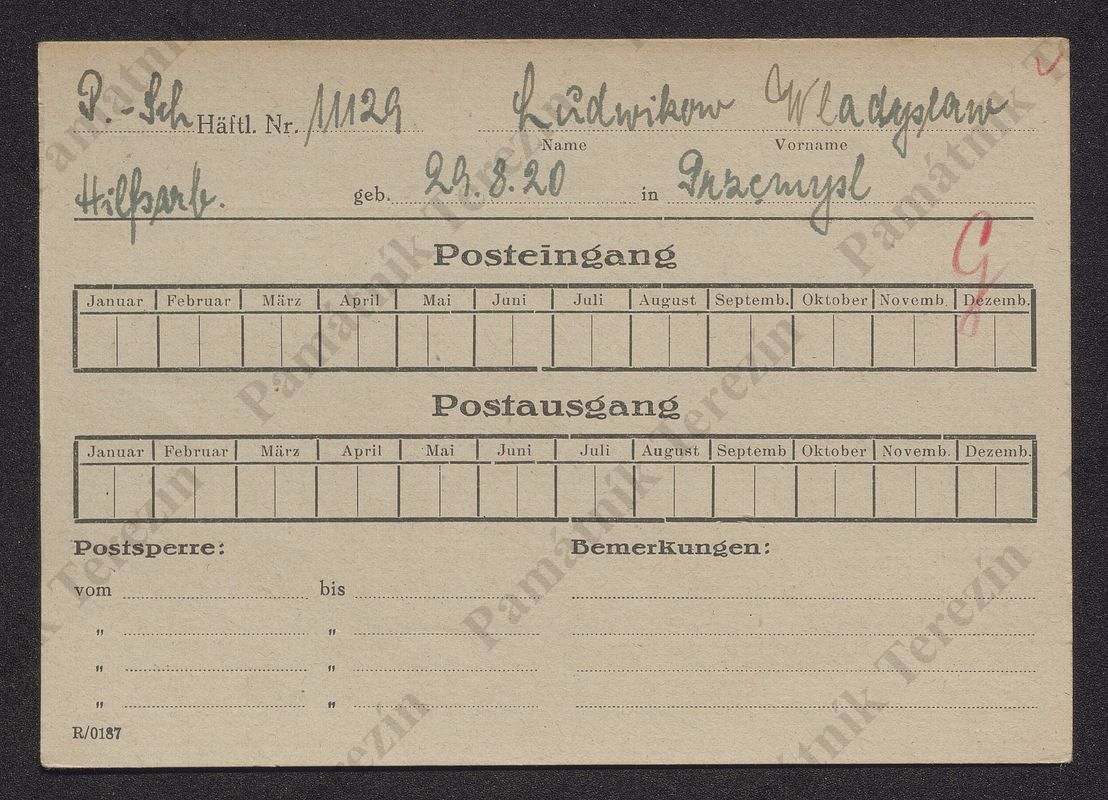 P.-Sch Häftl. Nr. 11129 Ludwikow Wladyslaw
Name Vorname
Hilfsarb. geb. 29.8.20 in Przemysl
Posteingang
G
Januar Februar März April Mai Juni Juli August Septemb. Oktober Novemb. Dezemb.
Postausgang
Januar Februar März April Mai Juni Juli August Septemb Oktober Novemb. Dezemb.
Postsperre: Bemerkungen:
vom bis
" "
" "
" "
R/0187
Památník Terezín